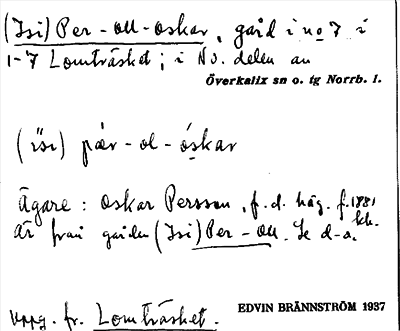 (Isi) Per-Oll-Oskar, gård i no 7 i
1-7 Lomträsket; i Nv. delen av
Överkalix sn o. tg Norrb. l.
(isi) pær-ol-óskar
Ägare: Oskar Persson, f.d. häg. f. 1881
är från gården (Isi) Per-Oll. Se d-o.
Uppg. fr. Lomträsket.
EDVIN BRÄNNSTRÖM 1937